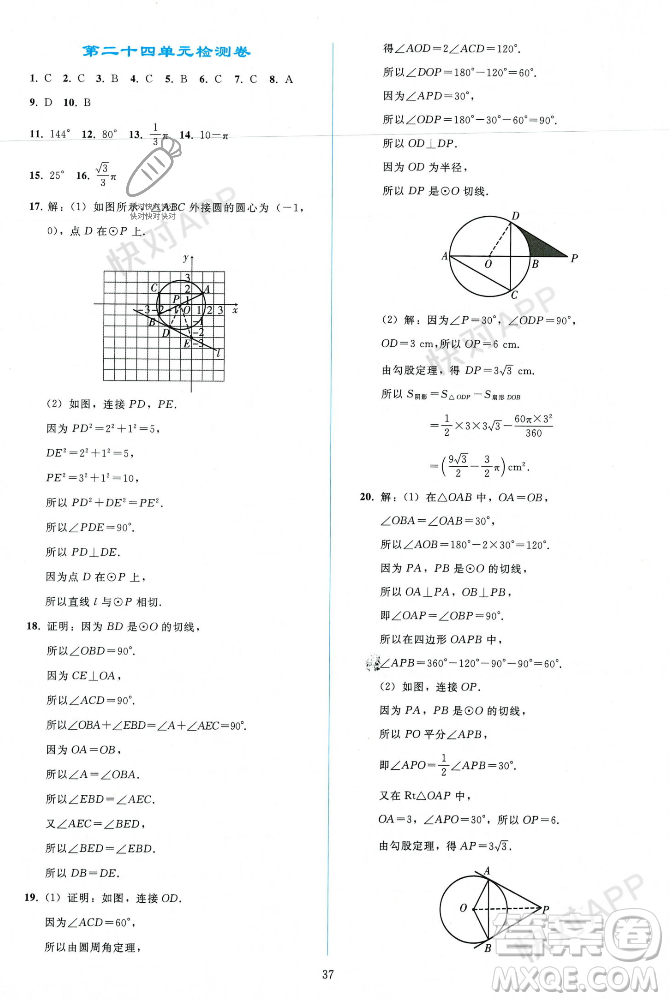 第二十四单元检测卷
1. C 2. C 3. B 4. C 5. B 6. C 7. C 8. A
9. D 10. B
11. 144° 12. 80° 13. 1/3π 14. 10－π
15. 25° 16. √3/3π
17. 解:(1) 如图所示,△ABC 外接圆的圆心为(－1,
0),点 D 在⊙P 上.
(2) 如图,连接 PD,PE.
因为 PD²＝2²＋1²＝5,
DE²＝2²＋1²＝5,
PE²＝3²＋1²＝10,
所以 PD²＋DE²＝PE².
所以∠PDE＝90°.
所以 PD⊥DE.
因为点 D 在⊙P 上,
所以直线 l 与⊙P 相切.
18. 证明:因为 BD 是⊙O 的切线,
所以∠OBD＝90°.
因为 CE⊥OA,
所以∠ACD＝90°.
所以∠OBA＋∠EBD＝∠A＋∠AEC＝90°.
因为 OA＝OB,
所以∠A＝∠OBA.
所以∠EBD＝∠AEC.
又∠AEC＝∠BED,
所以∠BED＝∠EBD.
所以 DB＝DE.
19. (1) 证明:如图,连接 OD.
因为∠ACD＝60°,
所以由圆周角定理,
得∠AOD＝2∠ACD＝120°.
所以∠DOP＝180°－120°＝60°.
因为∠APD＝30°,
所以∠ODP＝180°－30°－60°＝90°.
所以 OD⊥DP.
因为 OD 为半径,
所以 DP 是⊙O 切线.
A O B P D C
(2) 解:因为∠P＝30°,∠ODP＝90°,
OD＝3 cm,所以 OP＝6 cm.
由勾股定理,得 DP＝3√3 cm.
所以 S阴影＝S△ODP－S扇形DOB
＝1/2×3×3√3－60π×3²/360
＝(9√3/2－3/2π)cm².
20. 解:(1) 在△OAB 中,OA＝OB,
∠OBA＝∠OAB＝30°,
所以∠AOB＝180°－2×30°＝120°.
因为 PA,PB 是⊙O 的切线,
所以 OA⊥PA,OB⊥PB,
即∠OAP＝∠OBP＝90°.
所以在四边形 OAPB 中,
∠APB＝360°－120°－90°－90°＝60°.
(2) 如图,连接 OP.
因为 PA,PB 是⊙O 的切线,
所以 PO 平分∠APB,
即∠APO＝1/2∠APB＝30°.
又在 Rt△OAP 中,
OA＝3,∠APO＝30°,所以 OP＝6.
由勾股定理,得 AP＝3√3.
A O P B
37
快对快对快对
快对快对快对
快对APP
快对APP
快对APP
快对APP
答案圈
MXQE.COM